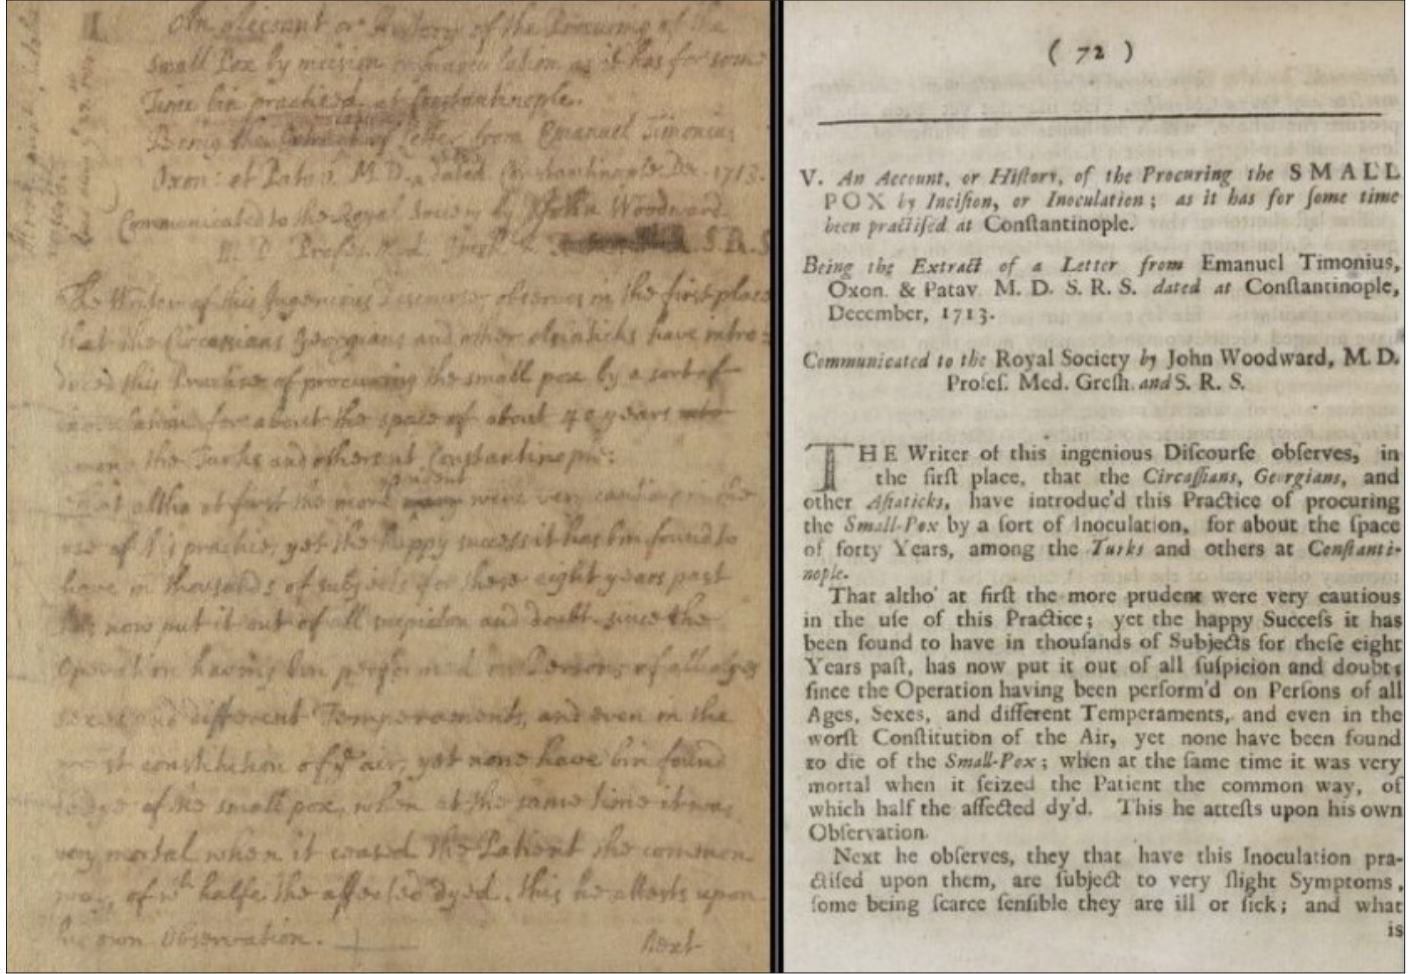 An account or History of the Procuring of the
small Pox by incision or inoculation as it has for some
Time bin practised at Constantinople.
Being the Extract of a letter from Emanuel Timonius
Oxon: et Patav: M.D. dated Constantinople De. 1713.
Communicated to the Royal Society by John Woodward
M. D Profes. Med. Gresh & S.R.S
The Writer of this Ingenious Discourse observes in the first place
that the Circassians Georgians and other Asiaticks have intro=
duced this Practice of procuring the small pox by a sort of
inoculation for about the space of about 40 years
among the Turks and others at Constantinople:
That altho at first the more prudent were very cautious in the
use of this practice, yet the happy success it has bin found to
have in thousands of subjects for these eight years past
has now put it out of all suspicion and doubt since the
Operation having bin performed on Persons of all ages
sexes and different Temperaments, and even in the
worst constitution of ye air, yet none have bin found
to dye of the small pox, when at the same time it was
very mortal when it ceased the Patient the common
way, of wch halfe the affected dyed. this he attests upon
his own Observation.
Next
( 72 )
V. An Account, or Hiſtory, of the Procuring the SMALL
POX by Inciſion, or Inoculation; as it has for ſome time
been practiſed at Conſtantinople.
Being the Extract of a Letter from Emanuel Timonius,
Oxon. & Patav. M. D. S. R. S. dated at Conſtantinople,
December, 1713.
Communicated to the Royal Society by John Woodward, M. D.
Profeſ. Med. Greſh. and S. R. S.
THE Writer of this ingenious Diſcourſe obſerves, in
the firſt place, that the Circaſſians, Georgians, and
other Aſiaticks, have introduc'd this Practice of procuring
the Small-Pox by a ſort of Inoculation, for about the ſpace
of forty Years, among the Turks and others at Conſtanti-
nople.
That altho' at firſt the more prudent were very cautious
in the uſe of this Practice; yet the happy Succeſs it has
been found to have in thouſands of Subjects for theſe eight
Years paſt, has now put it out of all ſuſpicion and doubt;
ſince the Operation having been perform'd on Perſons of all
Ages, Sexes, and different Temperaments, and even in the
worſt Conſtitution of the Air, yet none have been found
to die of the Small-Pox; when at the ſame time it was very
mortal when it ſeized the Patient the common way, of
which half the affected dy'd. This he atteſts upon his own
Obſervation.
Next he obſerves, they that have this Inoculation pra-
ctiſed upon them, are ſubject to very ſlight Symptoms,
ſome being ſcarce ſenſible they are ill or ſick; and what
is